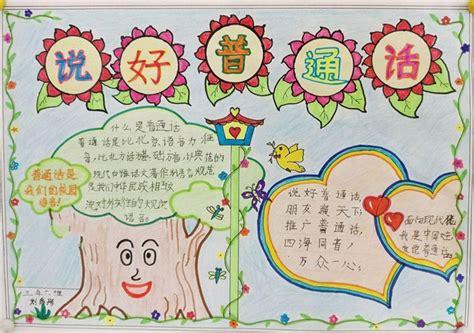 说好普通话
什么是普通话
普通话是以北京语音为准
音，以北方话为基础方言，以典范的
现代白话文著作为语法规范
是我们中华民族相互
语言
普通话是
我们的校园
语言！
说好普通话，
朋友遍天下
推广普通话，
四海同音！
万众一心；
面向现代化
我是中国娃
爱说普通话